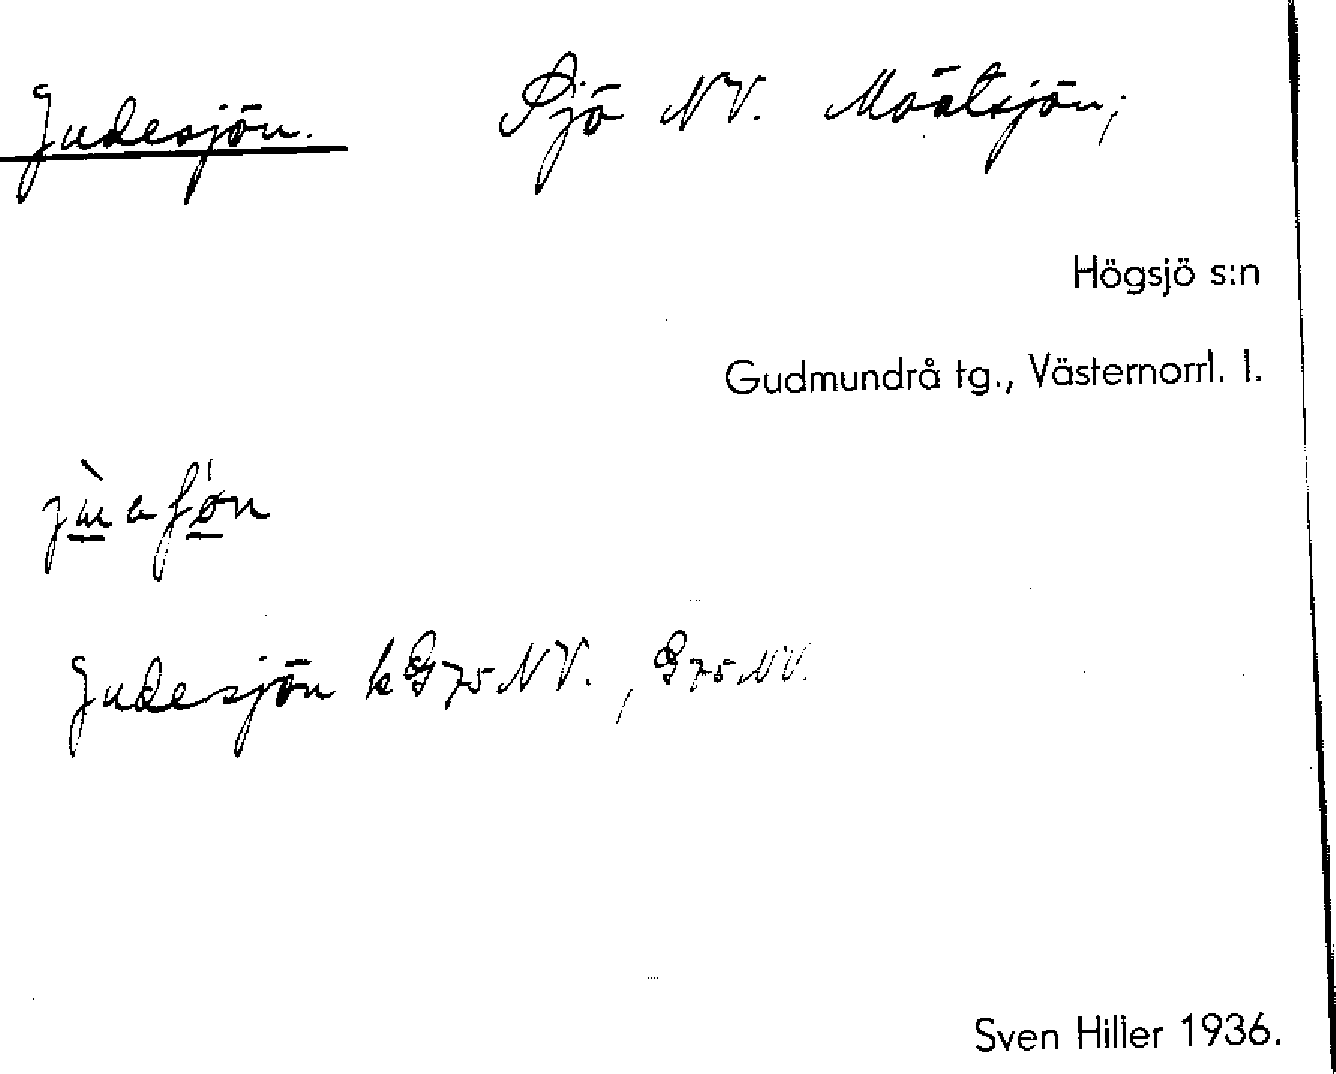 Judesjön. Sjö NV. Moätsjön;
Högsjö s:n
Gudmundrå tg., Västernorrl. l.
Judesjön k G 75 NV., G 75 NV.
Sven Hiller 1936.